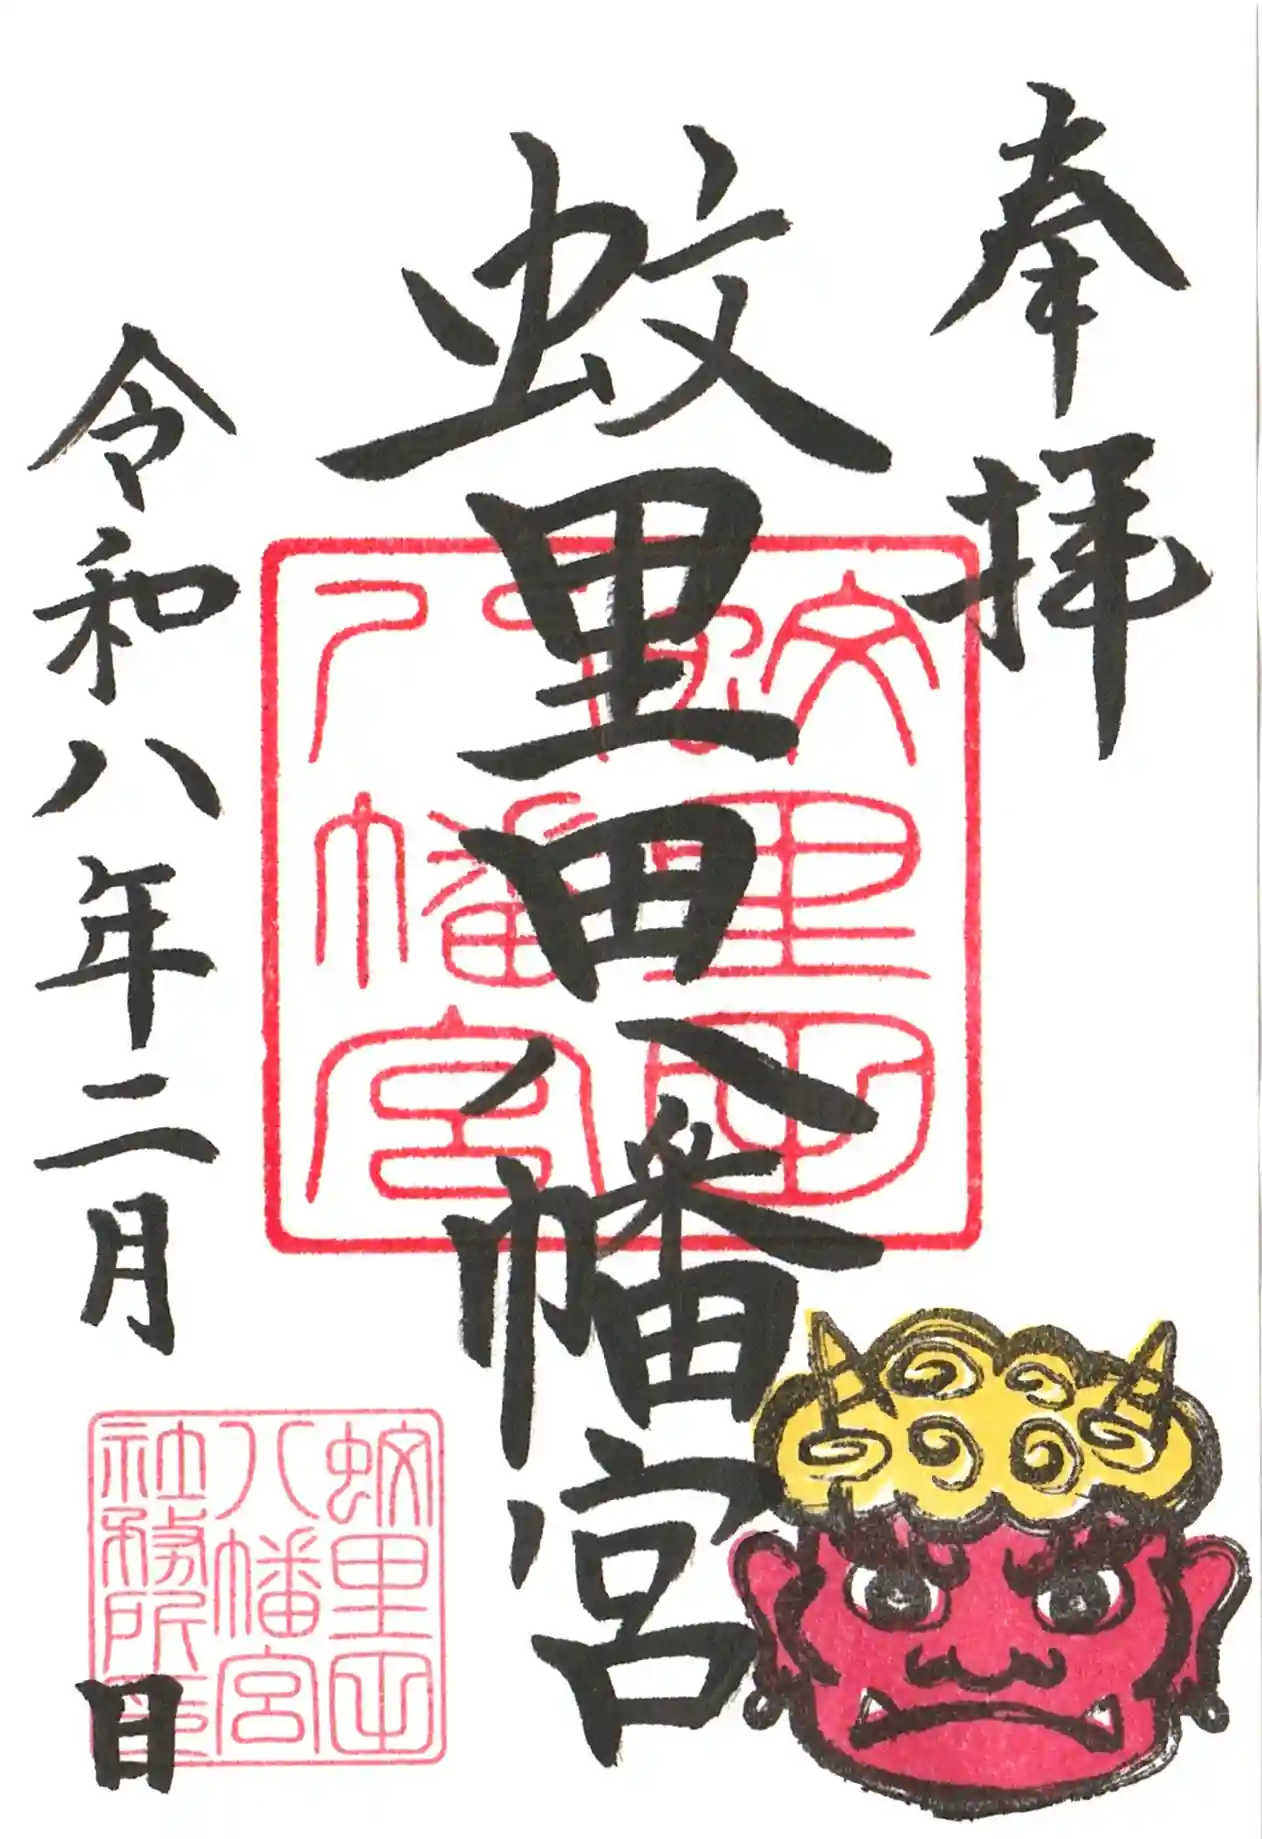 奉拝
蛟里田八幡宮
令和八年二月 日
蛟里田
八幡宮
蛟里田
八幡宮
社務所